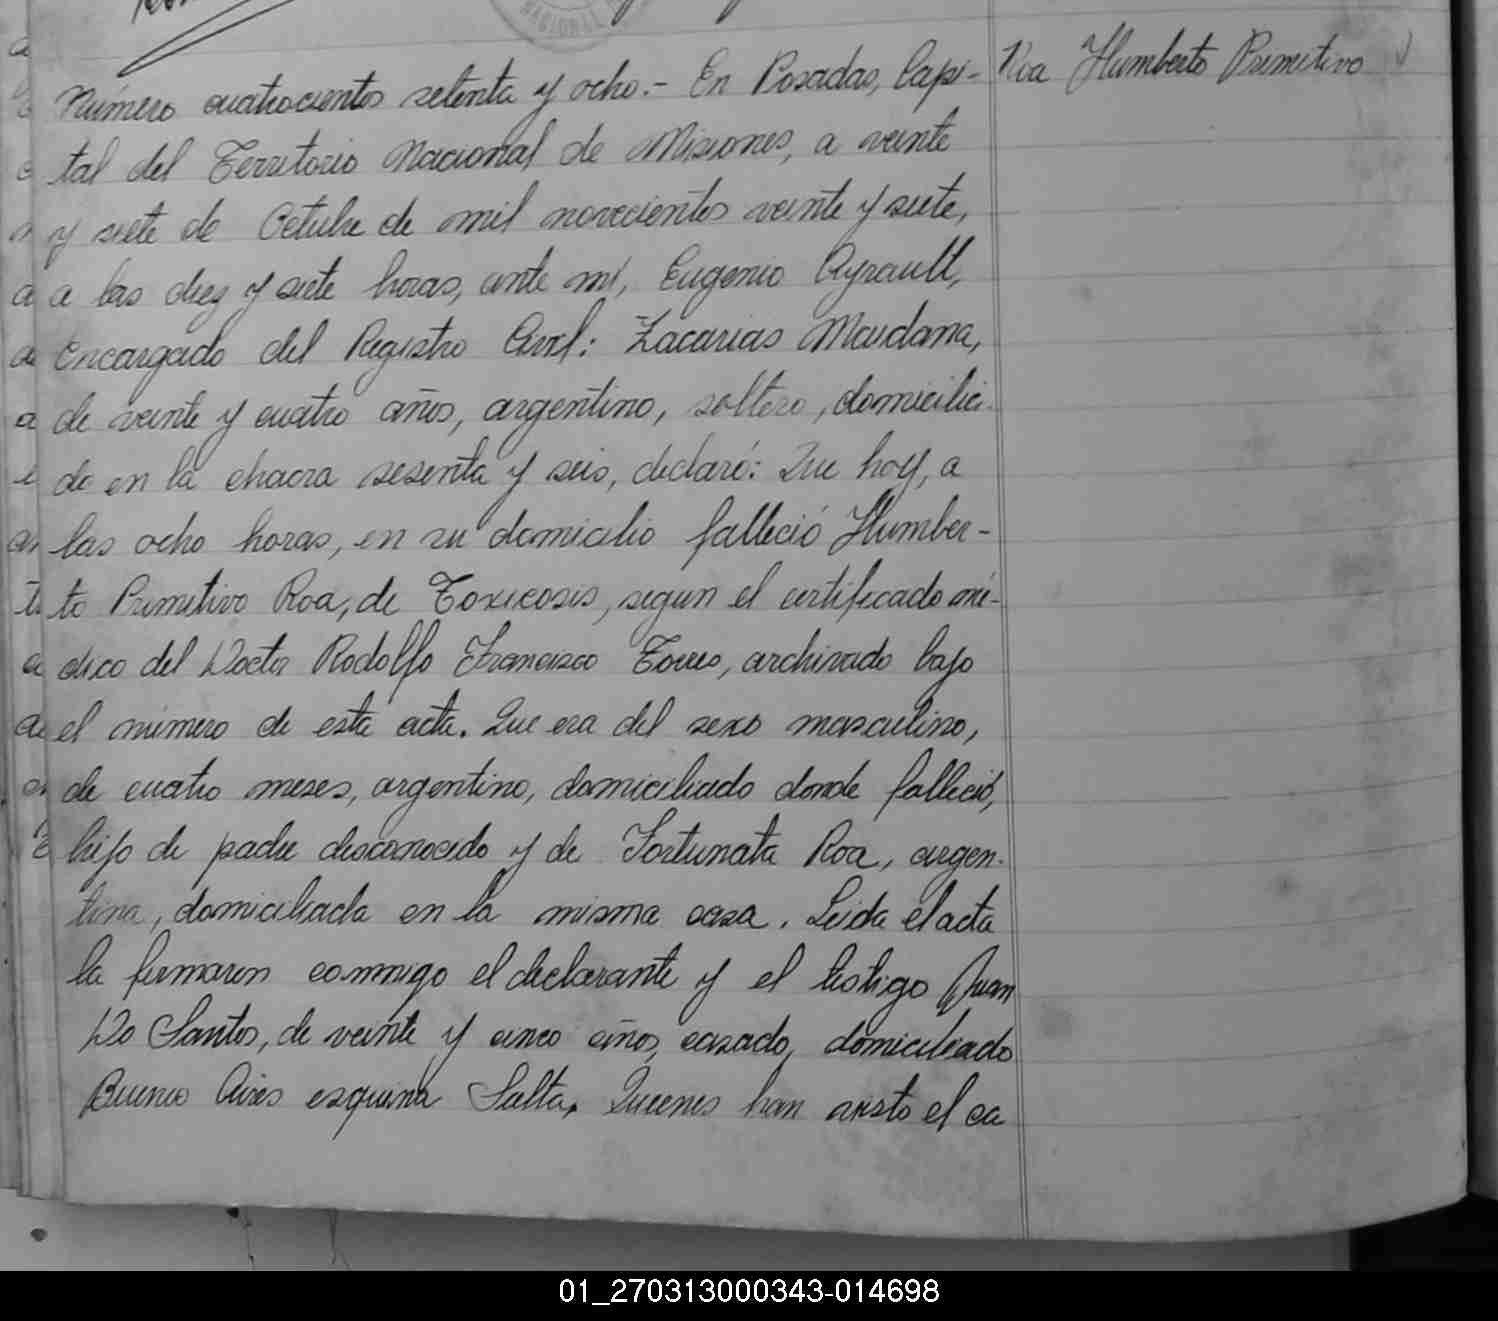 NACIONAL
Número cuatrocientos setenta y ocho.- En Posadas, Capi-
Roa Humberto Primitivo
tal del Territorio Nacional de Misiones, a veinte
y siete de Octubre de mil novecientos veinte y siete,
a las diez y siete horas, ante mí, Eugenio Ayrault,
Encargado del Registro Civil: Zacarias Maidana,
de veinte y cuatro años, argentino, soltero, domicilia-
do en la chacra sesenta y seis, declaró: Que hoy, a
las ocho horas, en su domicilio falleció Humber-
to Primitivo Roa, de Toxicosis, segun el certificado mé-
dico del Doctor Rodolfo Francisco Torres, archivado bajo
el número de esta acta. Que era del sexo masculino,
de cuatro meses, argentino, domiciliado donde falleció,
hijo de padre desconocido y de Fortunata Roa, argen-
tina, domiciliada en la misma casa. Leida el acta
la firmaron conmigo el declarante y el testigo Juan
Do Santos, de veinte y cinco años, casado, domiciliado
Buenos Aires esquina Salta, Quienes han visto el ca
01_270313000343-014698